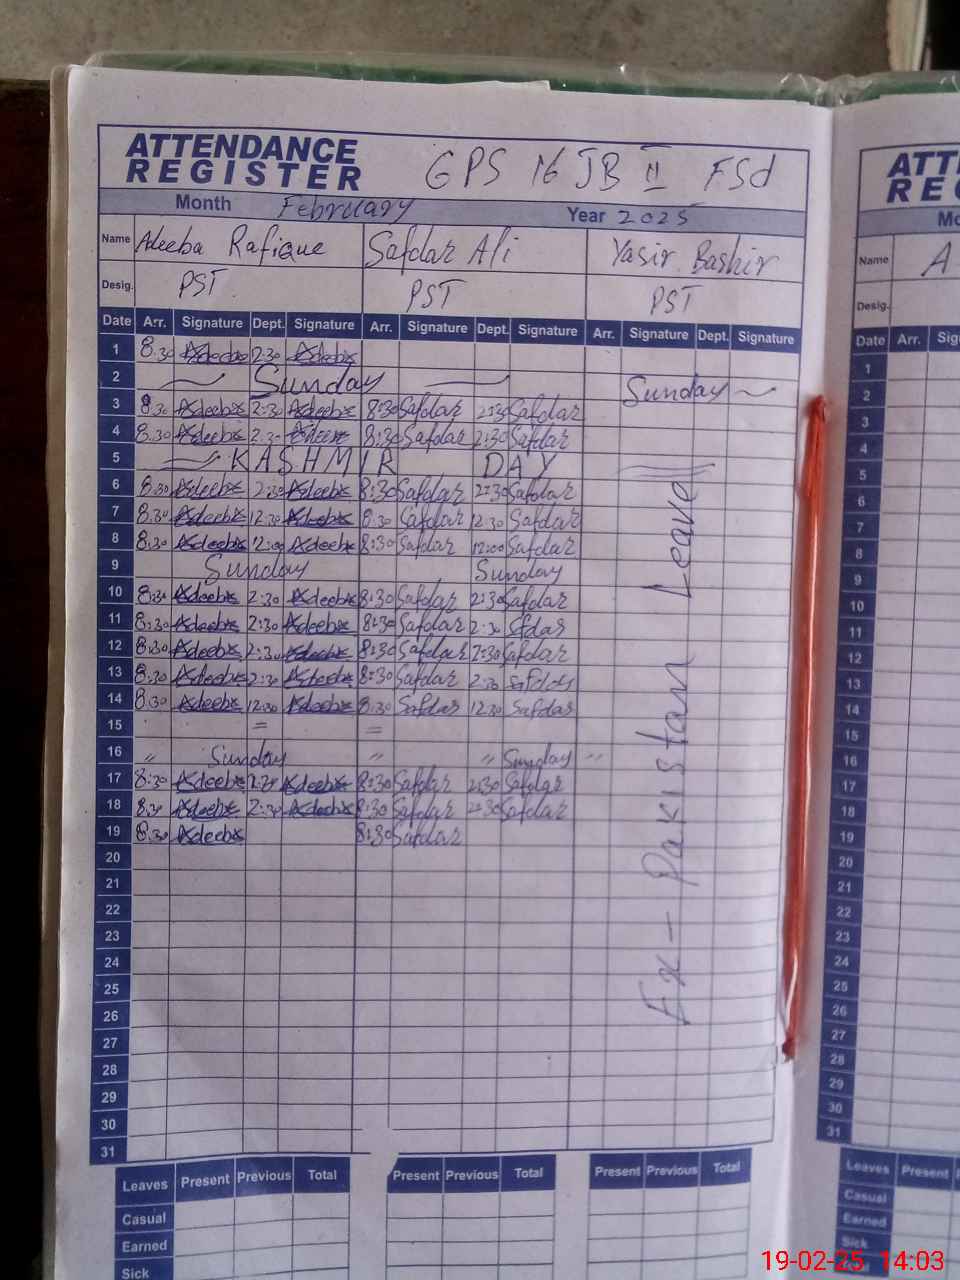 ATTENDANCE REGISTER GPS 16 JB II FSd
Month February Year 2025
Name Adeeba Rafique Safdar Ali Yasir Bashir
Desig. PST PST PST
Date Arr. Signature Dept. Signature Arr. Signature Dept. Signature Arr. Signature Dept. Signature
1 8:30 Adeeba 2:30 Adeeba
2 Sunday Sunday
3 8:30 Adeeba 2:30 Adeeba 8:30 Safdar 2:30 Safdar
4 8:30 Adeeba 2:30 Adeeba 8:30 Safdar 2:30 Safdar
5 KASHMIR DAY
6 8:30 Adeeba 2:30 Adeeba 8:30 Safdar 2:30 Safdar
7 8:30 Adeeba 12:30 Adeeba 8:30 Safdar 12:30 Safdar
8 8:30 Adeeba 12:00 Adeeba 8:30 Safdar 12:00 Safdar
9 Sunday Sunday
10 8:30 Adeeba 2:30 Adeeba 8:30 Safdar 2:30 Safdar
11 8:30 Adeeba 2:30 Adeeba 8:30 Safdar 2:30 Sfdar
12 8:30 Adeeba 2:30 Adeeba 8:30 Safdar 2:30 Safdar
13 8:30 Adeeba 2:30 Adeeba 8:30 Safdar 2:30 Safdar
14 8:30 Adeeba 12:30 Adeeba 8:30 Safdar 12:30 Safdar
15 = =
16 " Sunday " " Sunday "
17 8:30 Adeeba 2:30 Adeeba 8:30 Safdar 2:30 Safdar
18 8:30 Adeeba 2:30 Adeeba 8:30 Safdar 2:30 Safdar
19 8:30 Adeeba 8:30 Safdar
20
21
22
23
24
25
26
27
28
29
30
31
Ex-Pakistan Leave
Leaves Present Previous Total Present Previous Total Present Previous Total
Casual
Earned
Sick
Name A
Desig.
Date Arr.
1
2
3
4
5
6
7
8
9
10
11
12
13
14
15
16
17
18
19
20
21
22
23
24
25
26
27
28
29
30
31
Leaves Present
Casual
Earned
Sick
19-02-25 14:03